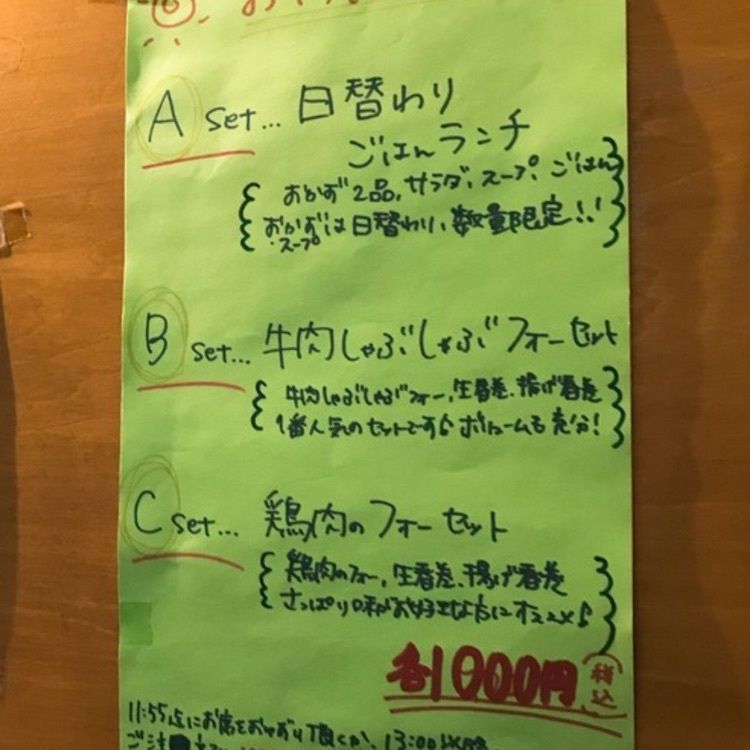 A set... 日替わり
ごはんランチ
おかず2品、サラダ、スープ、ごはん
おかずは日替わり、数量限定!!
スープ
B set... 牛肉しゃぶしゃぶフォーセット
牛肉しゃぶしゃぶフォー、生春巻、揚げ春巻
1番人気のセットです♪ ボリュームも充分!
C set... 鶏肉のフォーセット
鶏肉のフォー、生春巻、揚げ春巻
さっぱり味がお好きな方にオススメ♪
各1000円 税込
11:55迄にお席をおゆずり頂くか、13:00以降